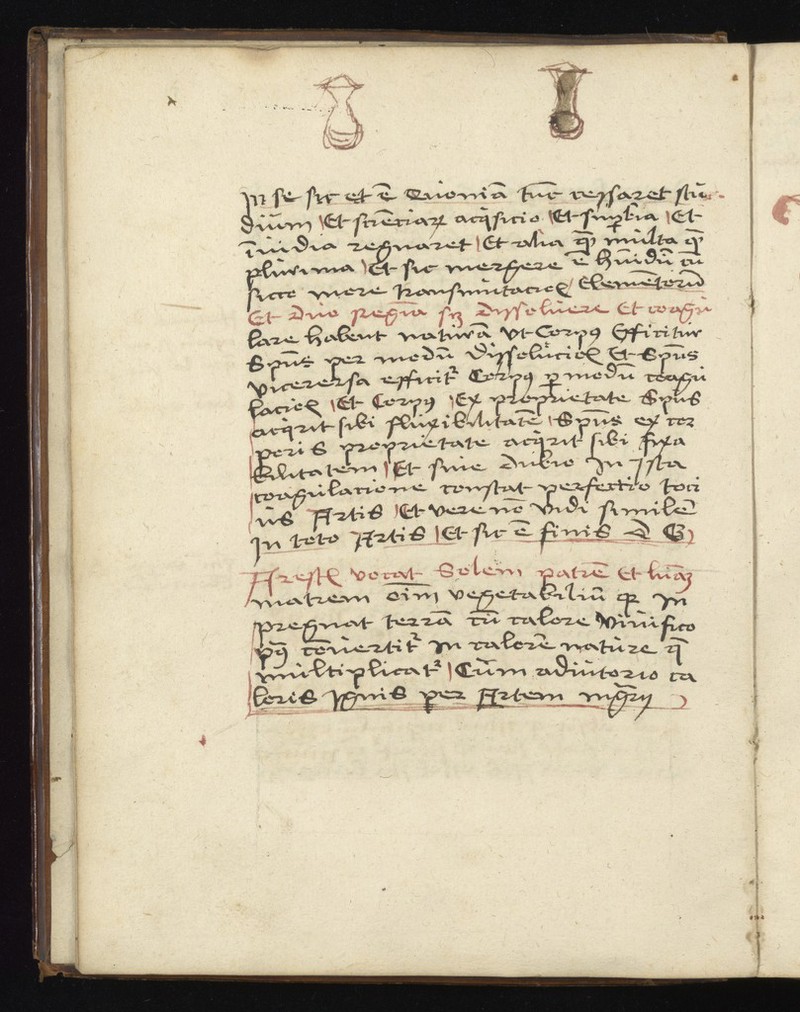 In se sic et ē Quoniā tūc cessaret stu
dium Et scīenciarꝝ acq̇sicio Et suꝑbia Et
īuidia regnaret Et alia qꝫ multa qꝫ
plurima Et sic mergere ē hūidū cū
sicco more transmutacioꝭ Elementorū
Et duo regīa sꝫ dissoluere Et coagu
lare habent naturā vt Corpꝰ Efficitur
Spūs per modū dissolucioꝭ Et Spūs
vicerersa efficitᷣ Corpꝰ ꝑ modū coagu
lacioꝭ Et Corpꝰ Ex proprietate Spūs
acq̇rit sibi fluxibilitatē Spūs ex cor
poris proprietate acq̇rit sibi fixa
bilitatem Et sine dubio In Ista
coagulacione constat perfectio toci
us Artis Et vere nō vidi similē
In toto Artis Et sic ē finis
Arestꝭ vocat Solem patrē Et lunā
matrem oīm vegetabiliū In
pregnat terrā cū calore viuifico
conuertitᷣ In calorē nature
multiplicatᷣ Cum adiutorio ca
loris Ignis per Artem mgr̄ij